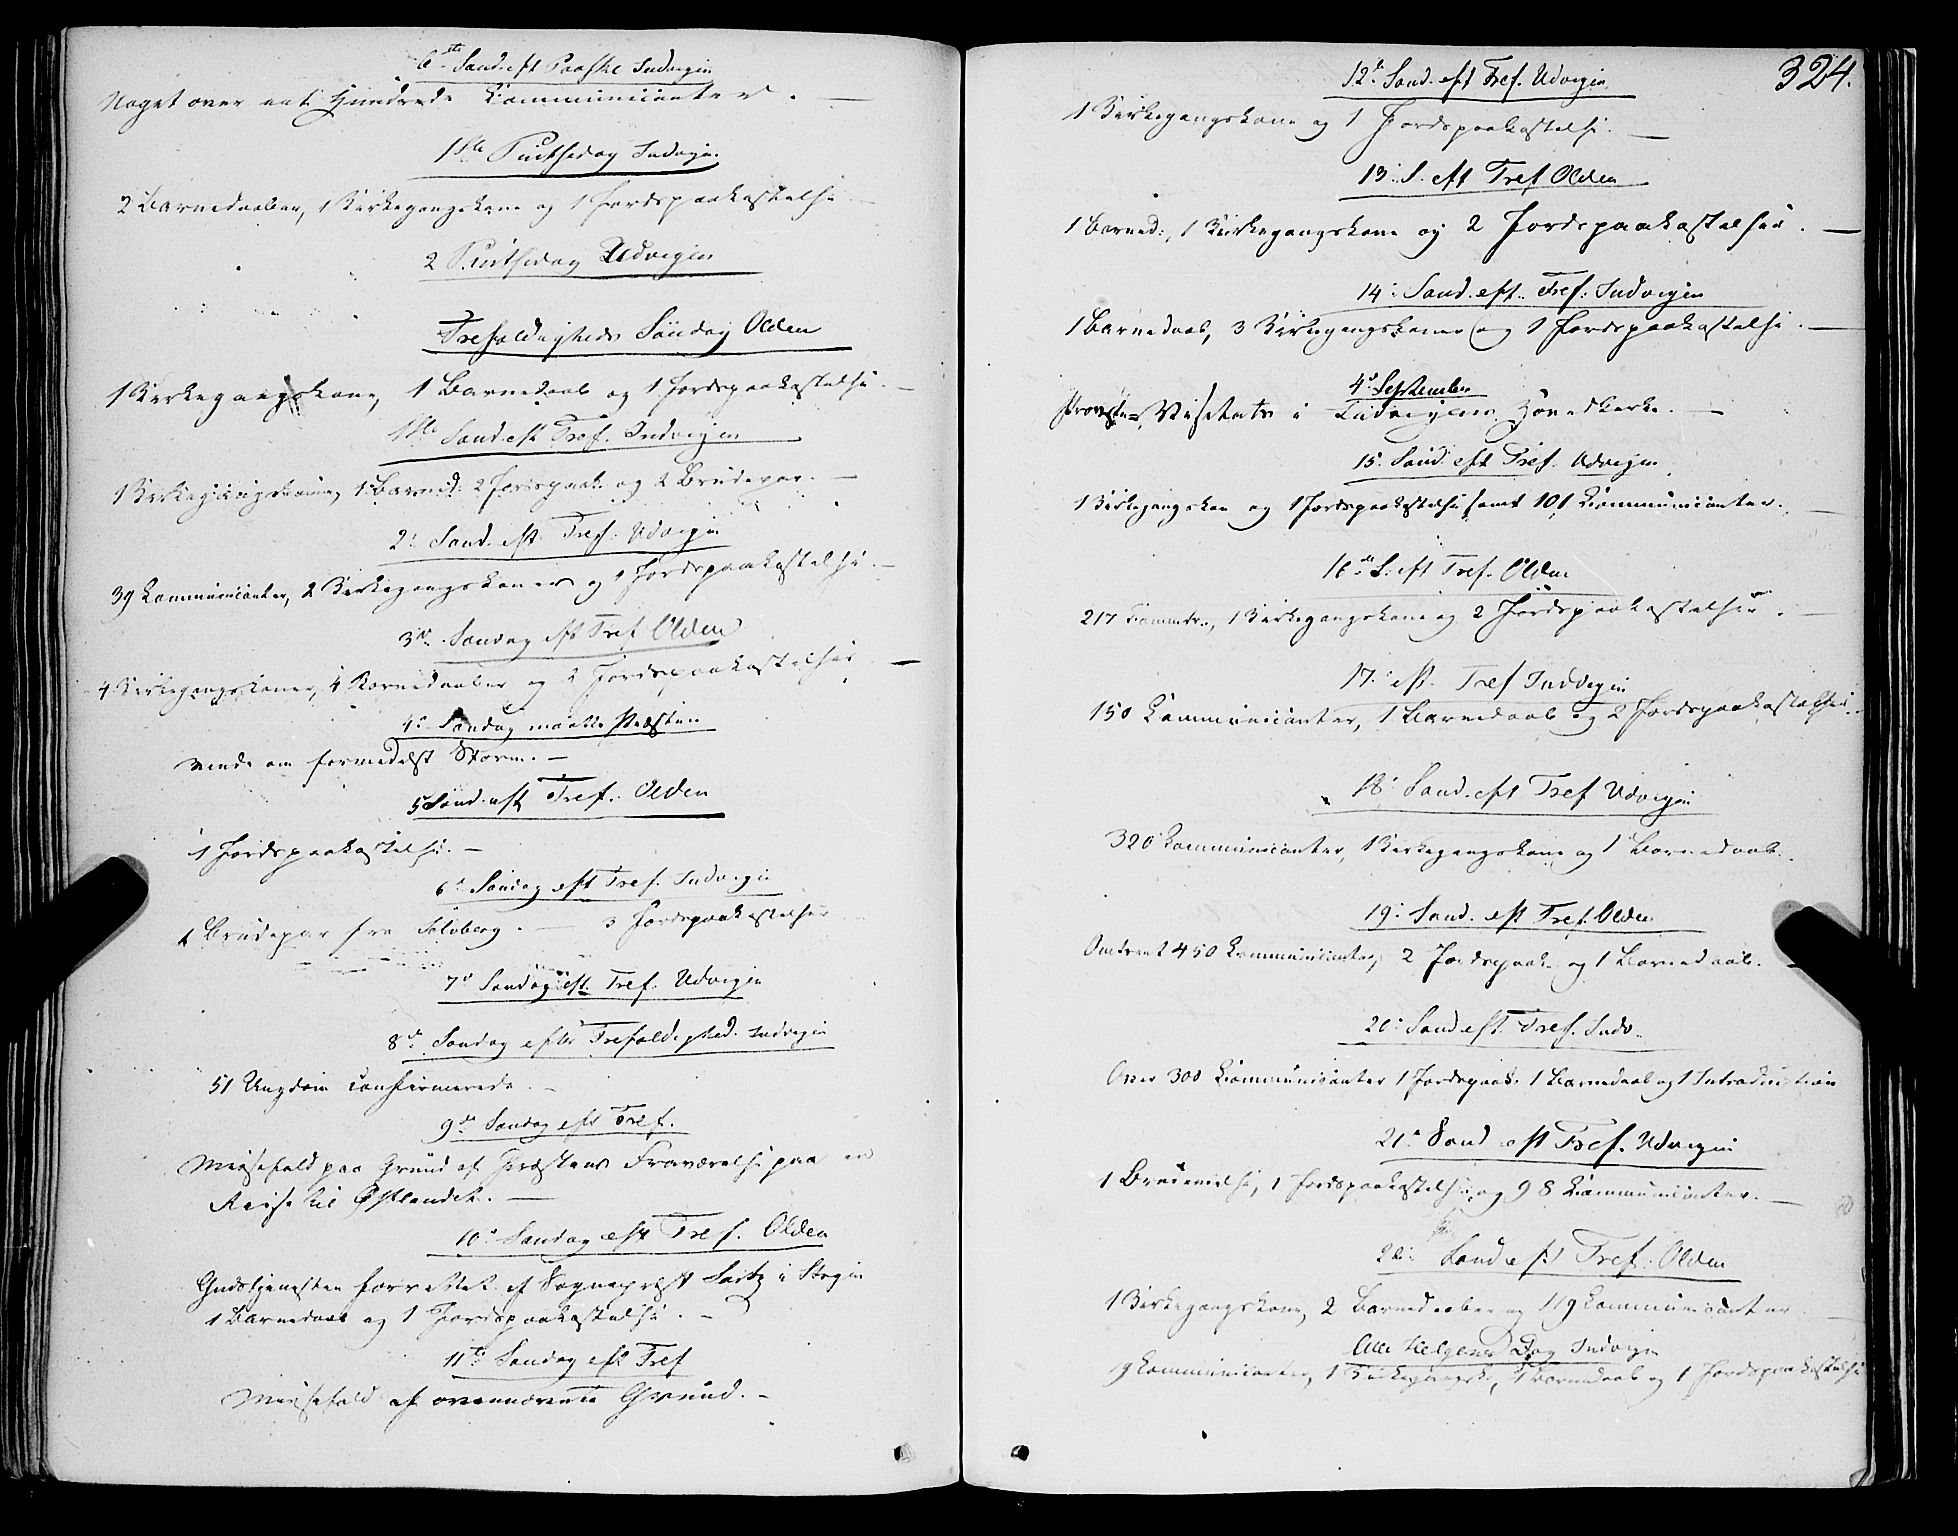 6te Sønd. eft Paaske Indvigen
Noget over eet Hundrede Communicanter. —
1ste Pintsedag Indvigen
2 Barnedaaber, 1 Kirkegangskone og 1 Jordspaakastelse. —
2 Pintsedag Udvigen
Trefoldigheds Søndag Olden
1 Kirkegangskone, 1 Barnedaab og 1 Jordspaakastelse. —
1ste Sønd. eft Tref. Indvigen
1 Kirkegangskone, 1 Barned: 2 Jordspaak: og 2 Brudepar. —
2: Sønd. eft. Tref. Udvigen
39 Communicanter, 2 Kirkegangskoner og 1 Jordspaakastelse. —
3d Søndag eft Tref Olden
4 Kirkegangskoner, 4 Barnedaaber og 2 Jordspaakastelser. —
4d Søndag maatte Præsten
vende om formedelst Storm. —
5 Sønd. eft Tref. Olden
1 Jordspaakastelse. —
6d Søndag eft Tref. Indvigen
1 Brudepar fra — 3 Jordspaakastelser
7d Søndag eft. Tref. Udvigen
8d Søndag efter Trefoldighed. Indvigen
51 Ungdom confirmerede. —
9de Søndag eft Tref.
Messefald paa Grund af Præstens Fraværelse paa en
Reise til Østlandet. —
10d Søndag eft Tref. Olden
Gudstjenesten forrettet af Sognepræst i
1 Barnedaab og 1 Jordspaakastelse. —
11te Søndag eft Tref
Messefald af ovennævnte Grund. —
324.
12te Sønd. eft Tref. Udvigen
1 Kirkegangskone og 1 Jordspaakastelse. —
13: S. eft Tref Olden
1 Barned:, 1 Kirkegangskone og 2 Jordspaakastelser. —
14: Sønd. eft. Tref: Indvigen
1 Barnedaab, 3 Kirkegangskoner og 1 Jordspaakastelse. —
4d September
Provste-Visitats i Indvigens Hovedkirke. —
15. Sønd. eft Tref. Udvigen
1 Kirkegangskone og 1 Jordspaakastelse samt 101 Communicanter. —
16de S: eft Tref. Olden
217 Commtr., 1 Kirkegangskone og 2 Jordspaakastelser. —
17: eft. Tref Indvigen
150 Communicanter, 1 Barnedaab og 2 Jordspaakastelser.
18: Sønd. eft Tref Udvigen
320 Communicanter, 1 Kirkegangskone og 1 Barnedaab.
19: Sønd. eft Tref. Olden
Omtrent 450 Communicanter, 2 Jordspaak: og 1 Barnedaab. —
20: Sønd. eft. Tref. Indv.
Over 300 Communicanter 1 Jordspaak: 1 Barnedaab og 1 Introduction
21: Sønd eft Tref. Udvigen
1 Brudevielse, 1 Jordspaakastelse og 98 Communicanter. —
22: Sønd eft Tref: Olden
1 Kirkegangskone, 2 Barnedaaber og 119 Communicanter
Alle Helgens Dag Indvigen
19 Communicanter, 1 Kirkegangsk:, 1 Barnedaab og 1 Jordspaakastelse